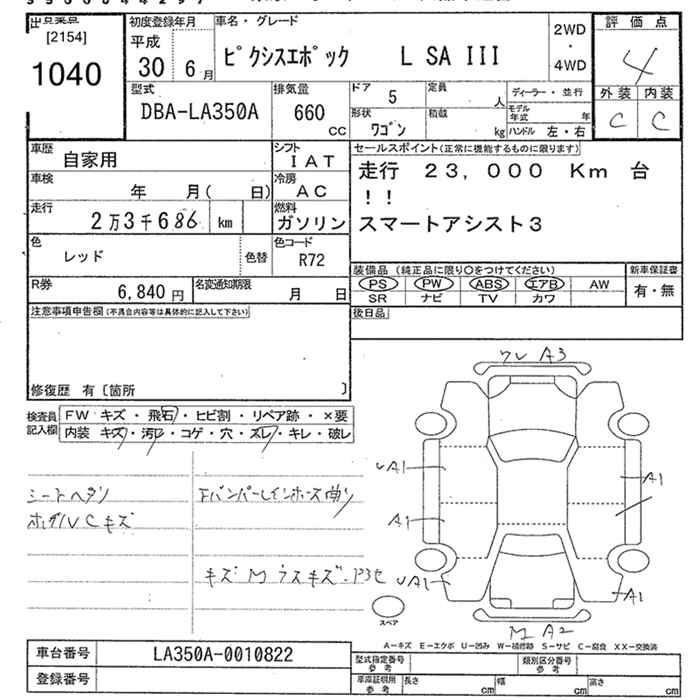 出品業店
[2154]
1040
初度登録年月
平成
30 6月
車名・グレード
ピクシスエポック L SA III
2WD
・
4WD
評価点
4
外装 内装
C C
型式
DBA-LA350A
排気量
660
CC
ドア 5
定員 人
形状
ワゴン
積載 kg
ディーラー・並行
モデル年式 年
ハンドル 左・右
車歴
自家用
シフト
IAT
車検
年 月( 日)
冷房
AC
走行
2万3千686 km
燃料
ガソリン
色
レッド
色替
色コード
R72
R券
6,840円
名変通知期限
月 日
セールスポイント(正常に機能するものに限ります)
走行 23,000 Km 台
!!
スマートアシスト3
装備品(純正品に限り○をつけてください)
PS PW ABS エアB AW
SR ナビ TV カワ
新車保証書
有・無
後日品
注意事項申告欄(不具合内容等は具体的に記入して下さい)
修復歴 有〔箇所 〕
検査員
記入欄
FW キズ・飛石・ヒビ割・リペア跡・×要
内装 キズ・汚レ・コゲ・穴・スレ・キレ・破レ
シートヘタリ
下バンパーレインホース曲リ
キズM
ワレ A3
UA1
A1
A1
UA1
A1
M A2
スペア
A－キズ E－エクボ U－凹み W－補修跡 S－サビ C－腐食 XX－交換済
車台番号 LA350A-0010822
登録番号
型式指定番号
参考
類別区分番号
参考
車庫証明用
参考
長さ cm
幅 cm
高さ cm